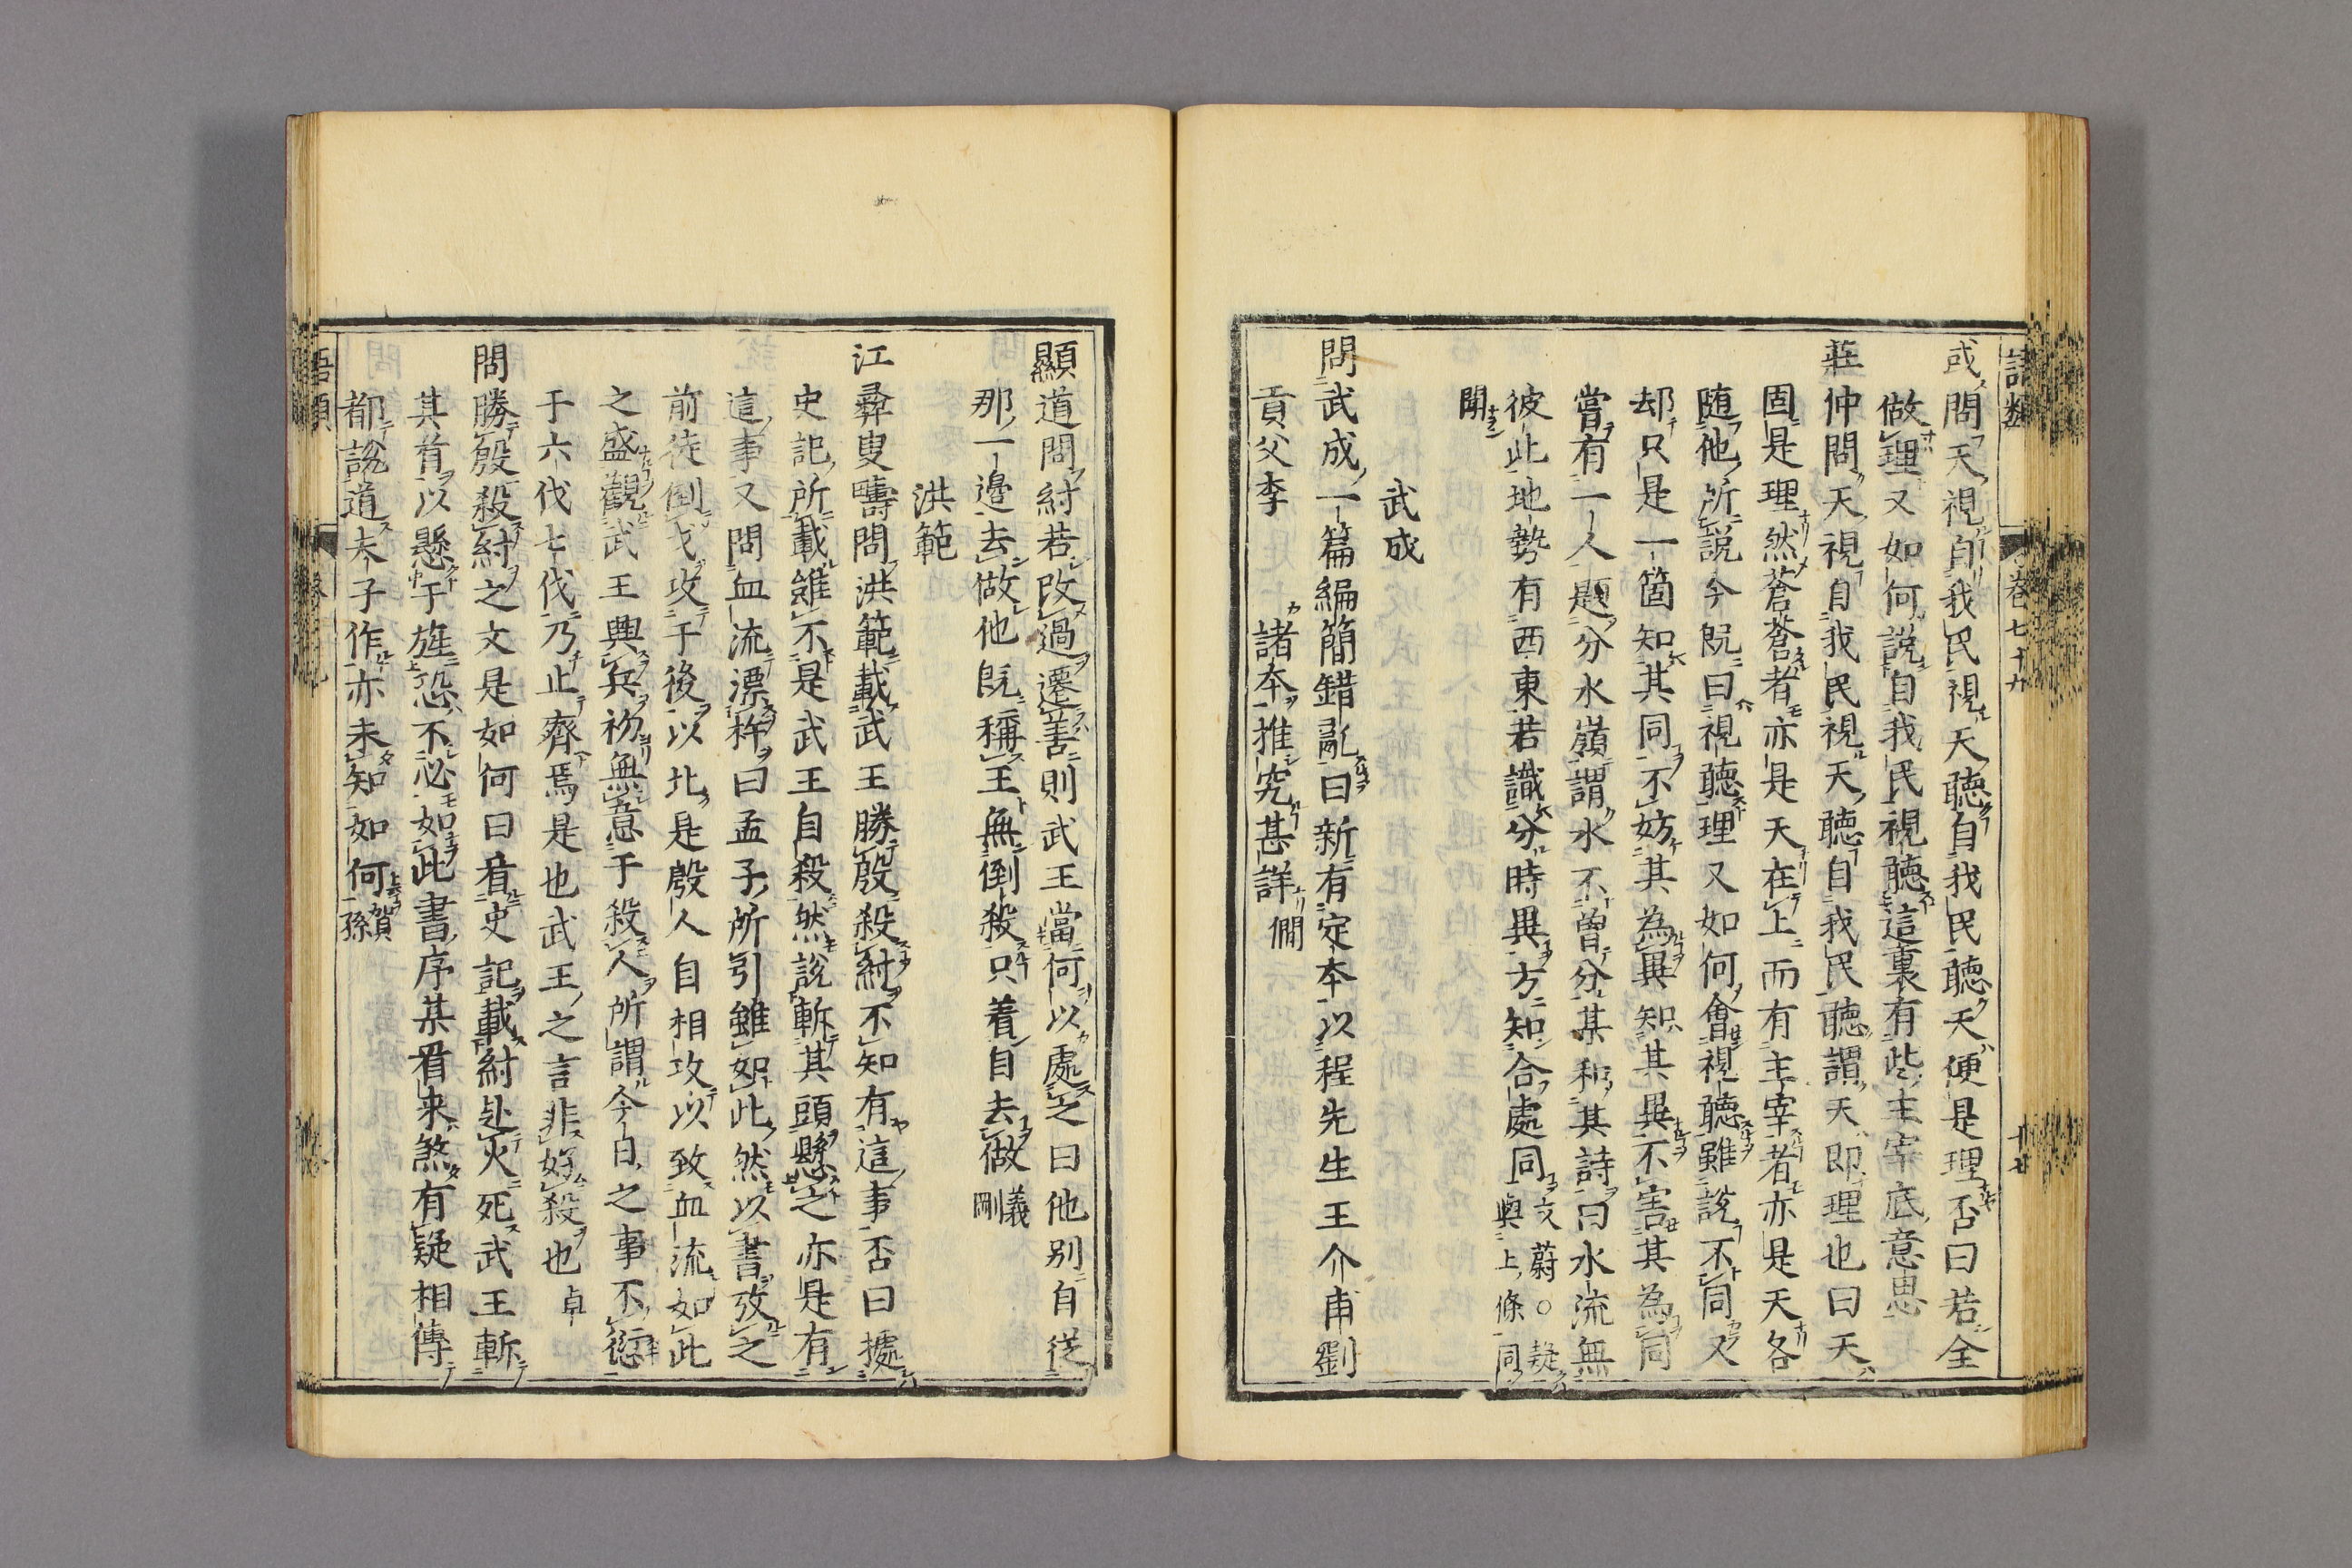 語類 卷七十九
或問天視自我民視天聽自我民聽天便是理否曰若全
做理又如何說自我民視聽這裏有些主宰底意思
莊仲問天視自我民視天聽自我民聽謂天即理也曰天
固是理然蒼蒼者亦是天在上而有主宰者亦是天各
随他所說今旣曰視聽理又如何會視聽雖說不同又
却只是一箇知其同不妨其為異知其異不害其為同
嘗有一人題分水嶺謂水不曾分某和其詩曰水流無
彼此地勢有西東若識分時異方知合處同文蔚○疑與上條同
聞
武成
問武成一篇編簡錯亂曰新有定本以程先生王介甫劉
貢父李 諸本推究甚詳僩
顯道問紂若改過遷善則武王當何以處之曰他别自從
那一邊去做他旣稱王無倒殺只着自去做義剛
洪範
江彛叟疇問洪範載武王勝殷殺紂不知有這事否曰據
史記所載雖不是武王自殺然說斬其頭懸之亦是有
這事又問血流漂杵曰孟子所引雖如此然以書攷之
前徒倒戈攻于後以北是殷人自相攻以致血流如此
之盛觀武王興兵初無意于殺人所謂今日之事不愆
于六伐七伐乃止齊焉是也武王之言非好殺也卓
問勝殷殺紂之文是如何曰看史記載紂赴火死武王斬
其首以懸于旌恐不必如此書序某看来煞有疑相傳
都說道夫子作亦未知如何賀孫
語類